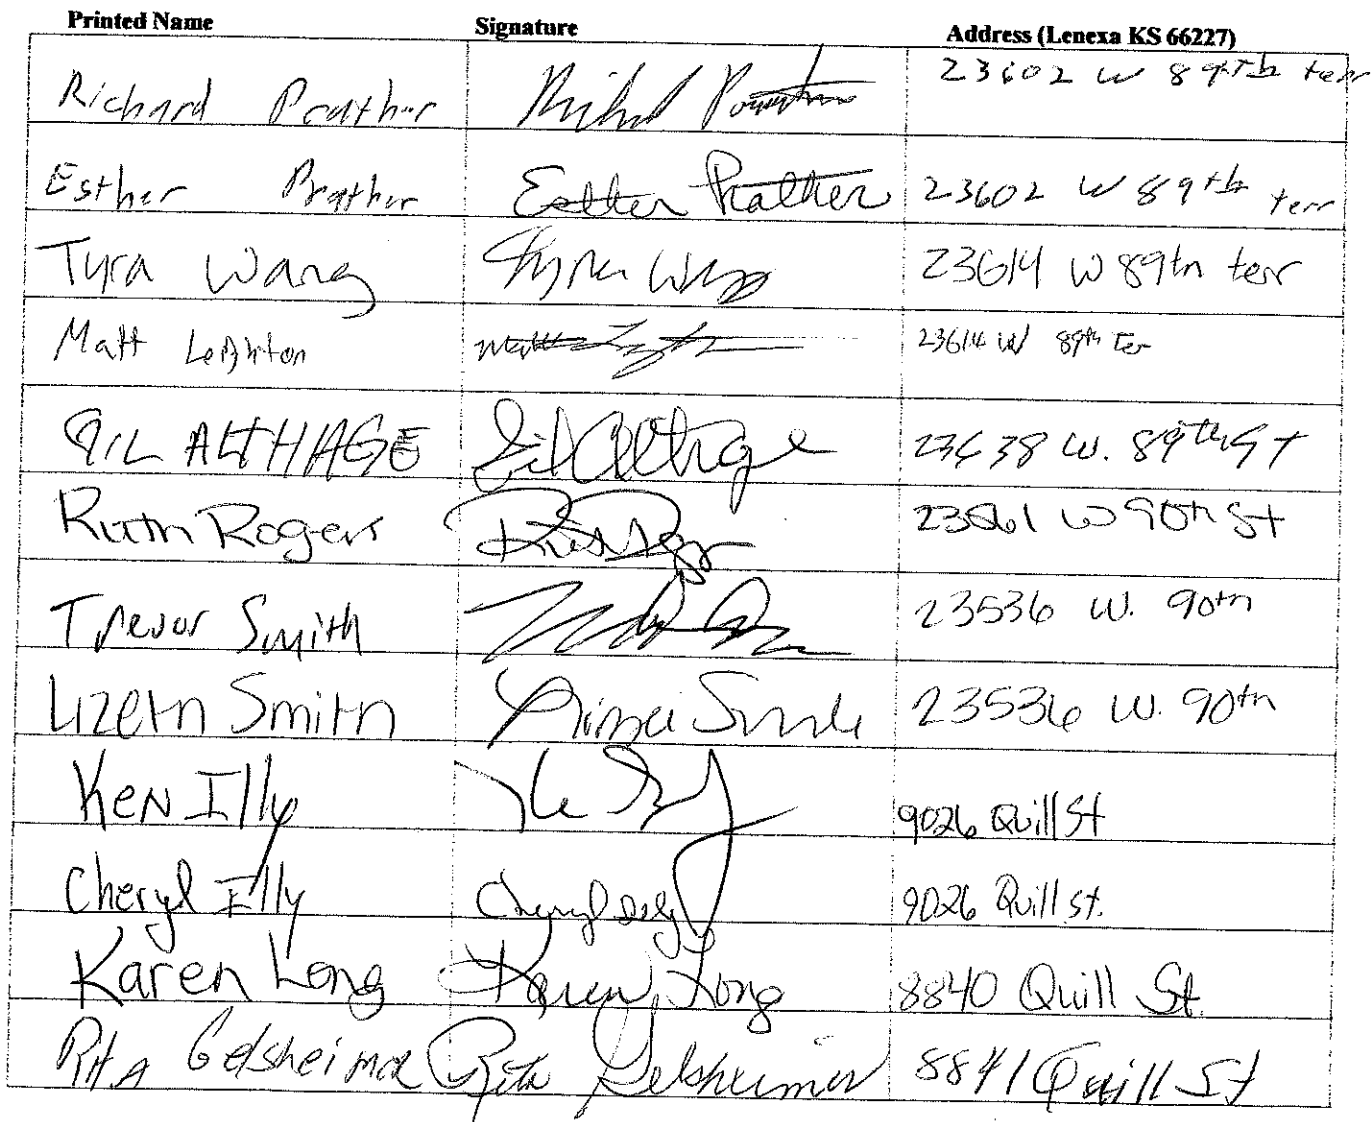 Printed Name Signature Address (Lenexa KS 66227)
Richard Prather 23602 W 89th terr
Esther Prather Esther Prather 23602 W 89th terr
Tyra Wang Tyra Wang 23614 W 89th terr
Matt Leighton Matt 23614 W 89th Ter
GIL ALTHAGE Gil Althage 23638 W. 89th St
Ruth Rogers Ruth 23561 W 90th St
Trevor Smith 23536 W. 90th
Lizeth Smith 23536 W. 90th
Ken Illy 9026 Quill St
Cheryl Illy Cheryl Illy 9026 Quill St.
Karen Long Karen Long 8840 Quill St.
RitA Gelsheimer Rita Gelsheimer 8841 Quill St